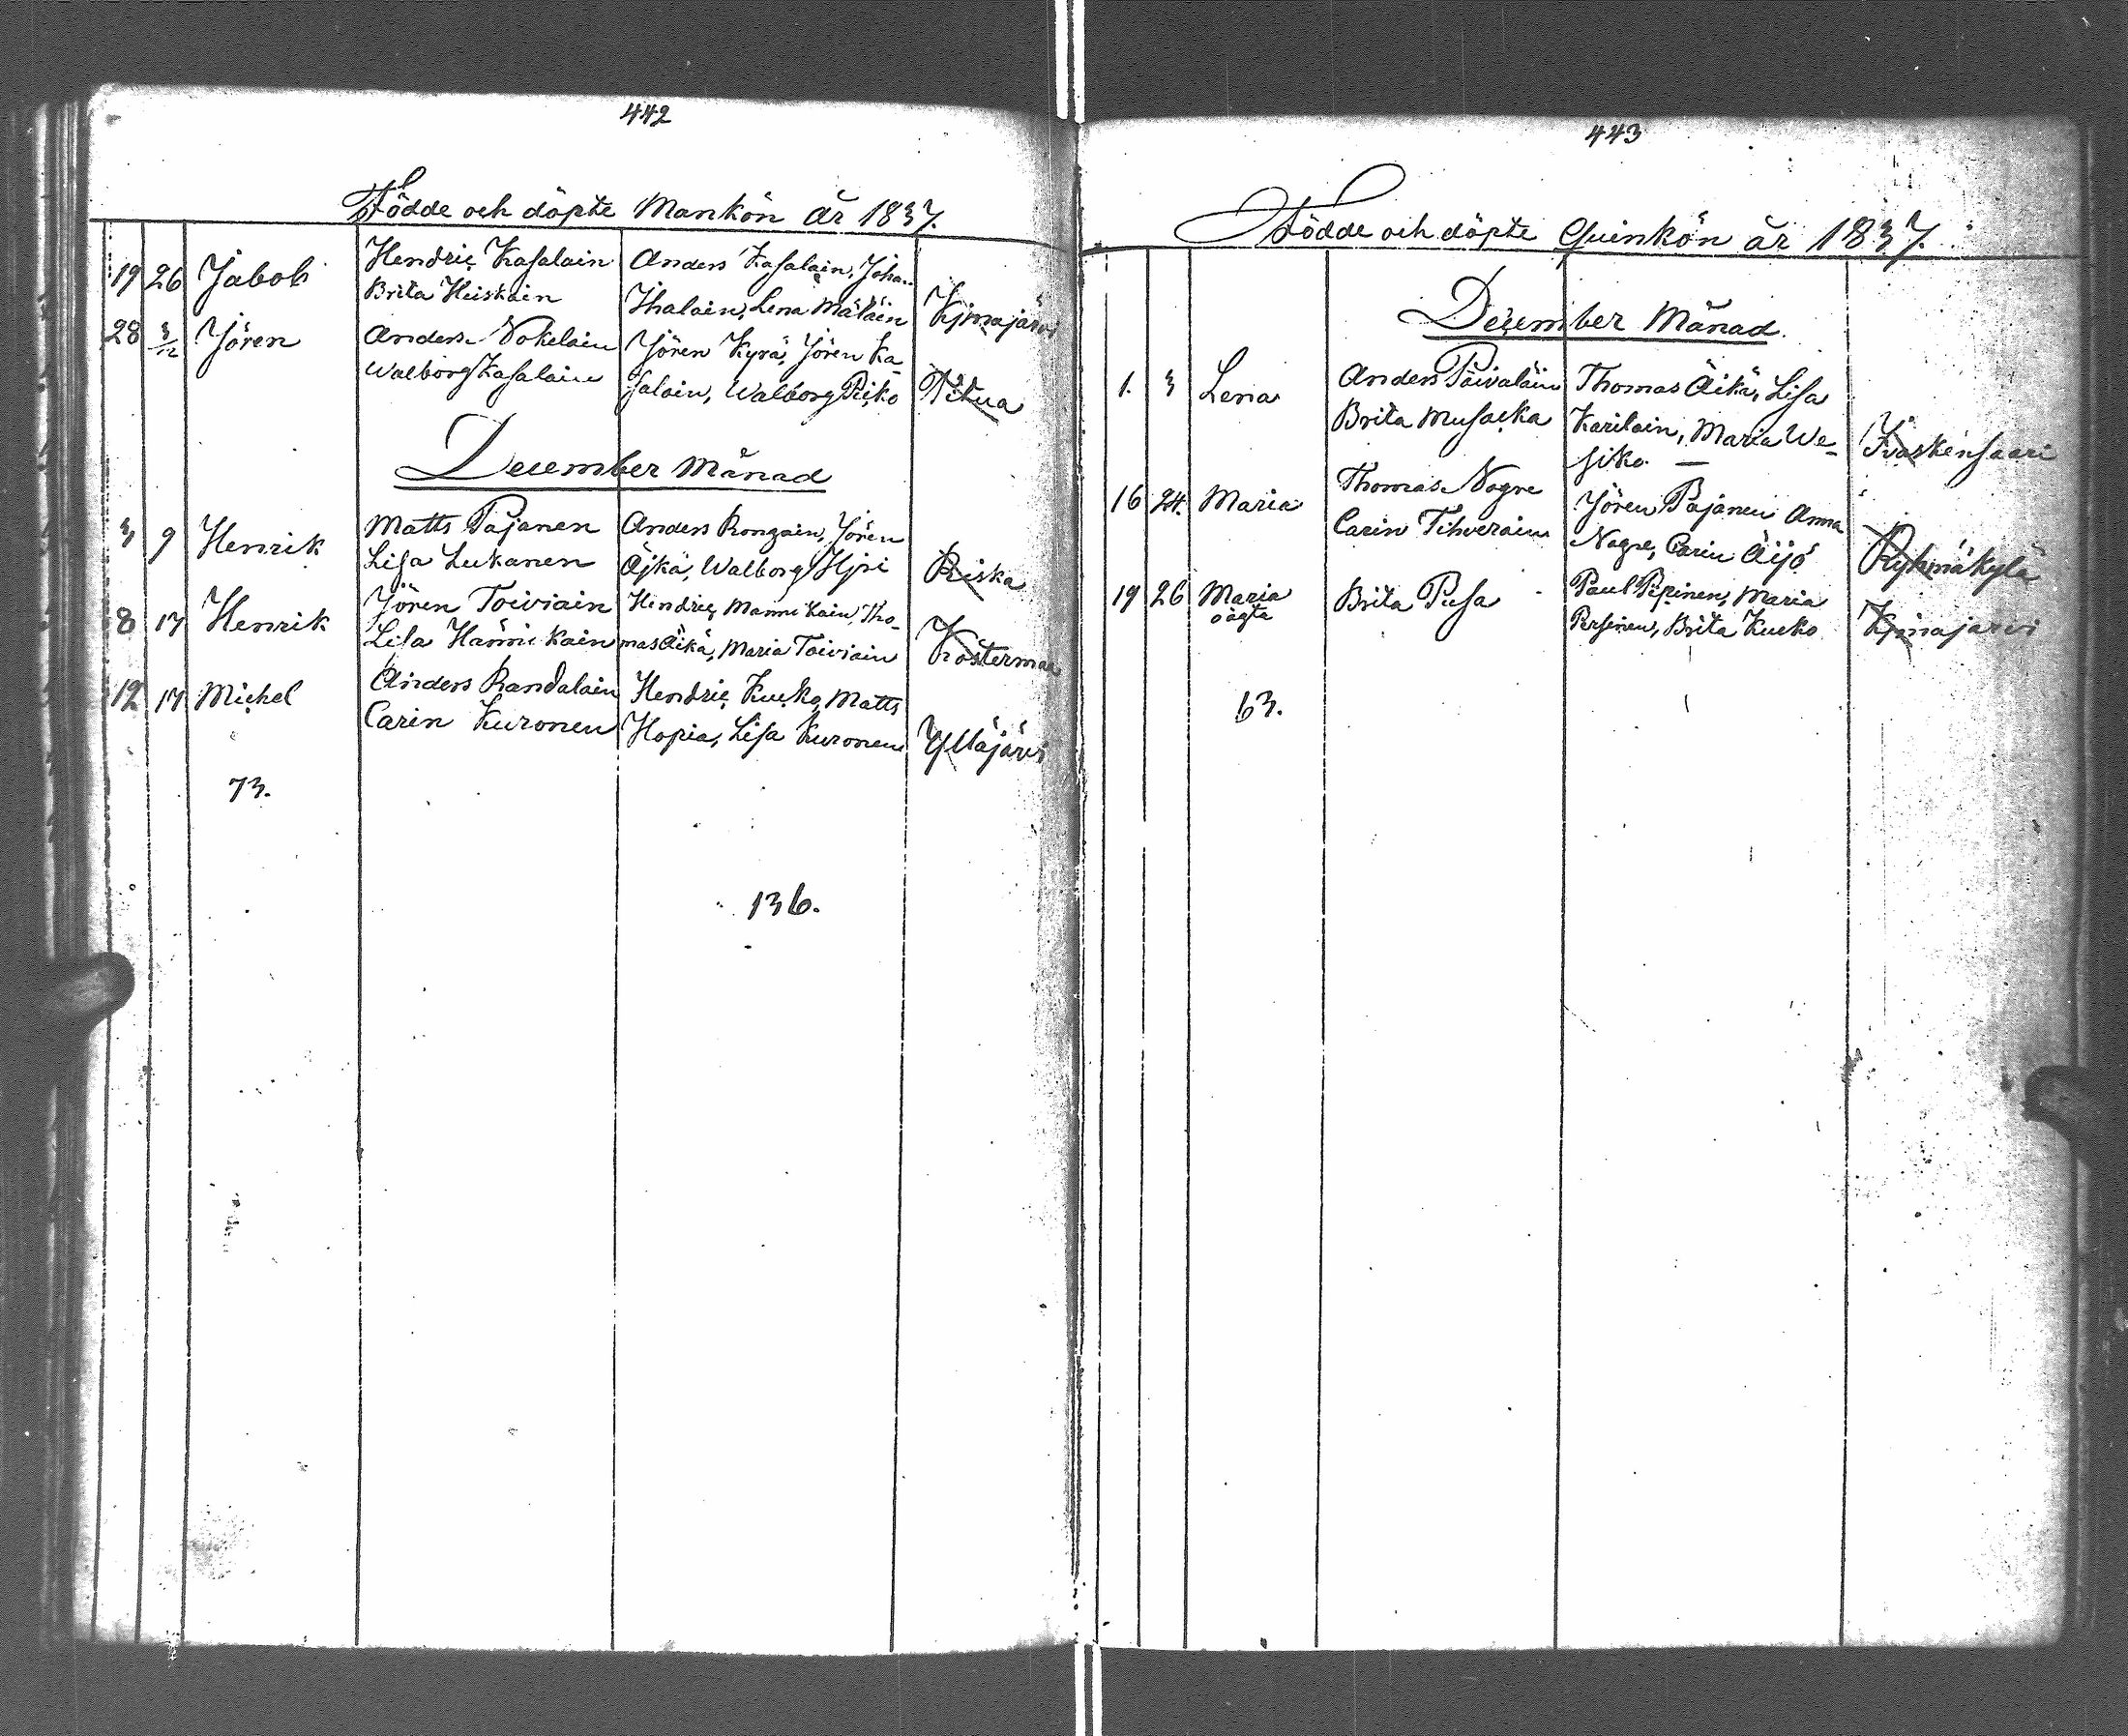 442
Födde och döpte Mankön år 1837.
19 26 Jabob Hendric Kasalain Anders Kasalain, Johan
Brita Heiskain Ihalain, Lena Mäläin Kjmajärvi
28 3/12 Jören Anders Nokelain Jören Kyrä, Jören Ka-
Walborg Kasalain salain, Walborg Ricko Pitua
December Månad
3 9 Henrik Matts Pajanen Anders Rongain, Jören
Lisa Lukanen Äjkä, Walborg Hjri Riska
8 17 Henrik Jören Toiviain Hendric Mannikain, Tho-
Lisa Hännikain mas Äikä, Maria Toiviain Kostermaa
12 17 Michel Anders Randalain Hendric Kucko, Matts
Carin Kuronen Hopia, Lisa Kuronen Ylläjärvi
73.
136.
443
Födde och döpte Quinkön år 1837.
December Månad.
1. 3 Lena Anders Päivaläin Thomas Äikä, Lisa
Brita Musacka Karilain, Maria We-
siko. — Iwaskensaari
16 24. Maria Thomas Nogre Jören Pajanen Anna
Carin Tihverain Nogre, Carin Äijö Ryhmäkylä
19 26 Maria Brita Pusa Paul Pipinen, Maria
oägta Persinen, Brita Kucko Kjmajarvi
63.